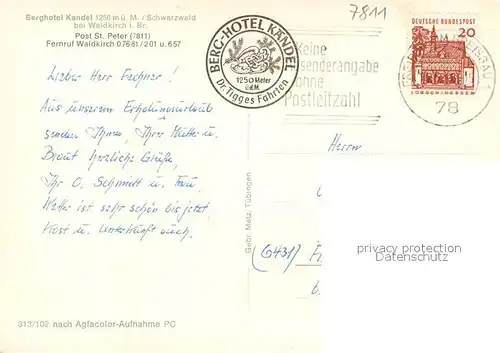 Berghotel Kandel 1250 m ü. M. / Schwarzwald
bei Waldkirch i. Br.
Post St. Peter (7811)
Fernruf Waldkirch 07681/201 u. 657
7811
BERG-HOTEL KANDEL
1250 Meter
ü.d.M.
Dr. Tigges Fahrten
Keine
Absenderangabe
ohne
Postleitzahl
DEUTSCHE BUNDESPOST
20
LORSCH/HESSEN
78
Lieber Herr Fechner!
Aus unserem Erholungsurlaub
senden Ihnen, Ihrer Mutter u.
Braut herzliche Grüße,
Ihr O. Schmitt u. Frau.
Wetter ist sehr schön bis jetzt,
Kost u. Unterkunft auch.
Herrn
(6431)
Gebr. Metz, Tübingen
313/102 nach Agfacolor-Aufnahme PC
privacy protection
Datenschutz